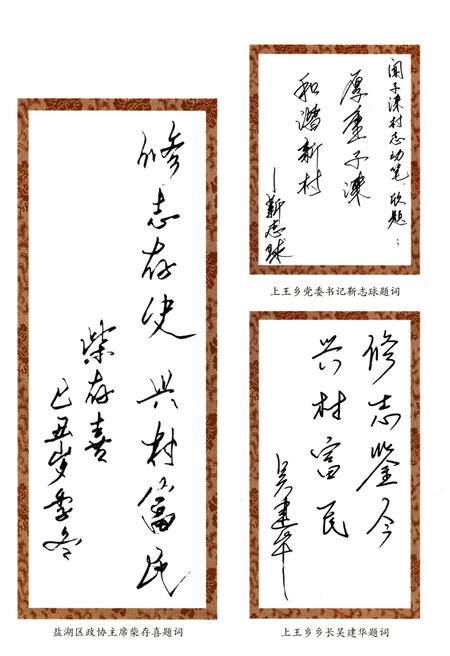 修志存史 兴村富民
柴存喜
己丑岁季冬
盐湖区政协主席柴存喜题词
闻子谏村志动笔，欣题：
厚重子谏
和谐新村
—靳志球
上王乡党委书记靳志球题词
修志鉴今
兴村富民
吴建华
上王乡乡长吴建华题词